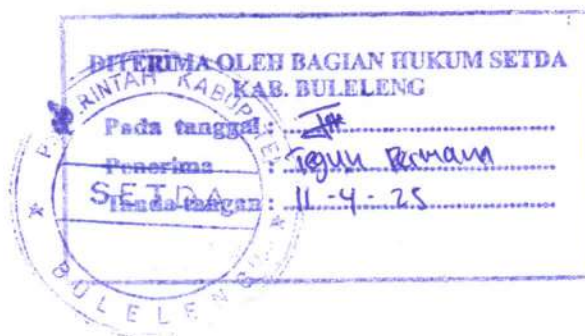 DITERIMA OLEH BAGIAN HUKUM SETDA
KAB. BULELENG
Pada tanggal :
Penerima : Teguh Permana
Tanda tangan : 11-4-25
PEMERINTAH KABUPATEN
SETDA
BULELENG